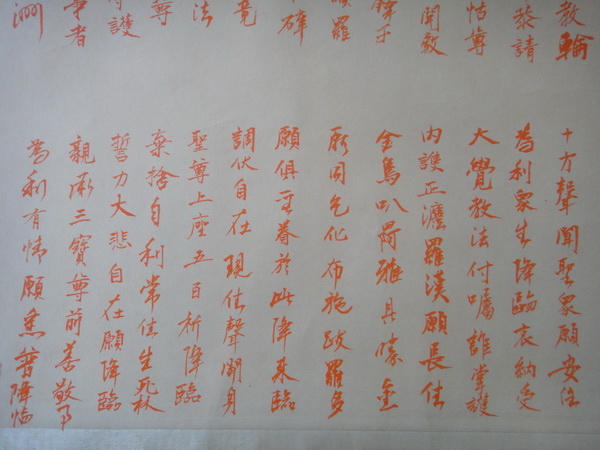 教輪
恭請
怙尊
聞敕
羅
竟
法
尊
護
者
洲
十方聲聞聖眾願安住
為利眾生降臨哀納受
大覺教法付囑誰掌護
內護正灋羅漢願長住
金烏叭荷雅具
所同乞化布施跋羅多
願俱至眷於此降來臨
調伏自在現住聲湖身
聖尊上座五百祈降臨
棄捨自利常住生死林
誓力大悲自在願降臨
親承三寶尊前善敬事
為利有情願悉普降臨